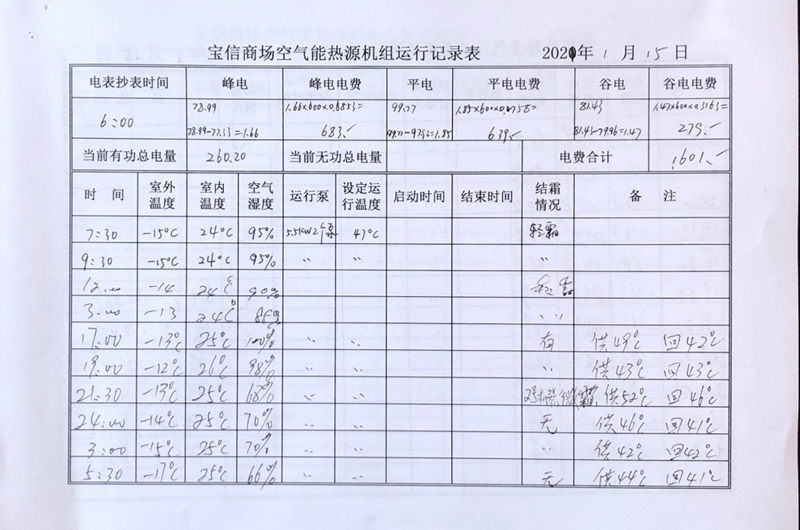 宝信商场空气能热源机组运行记录表 2021年1月15日
电表抄表时间 峰电 峰电电费 平电 平电电费 谷电 谷电电费
6:00 78.99 1.66×600×0.6853= 99.77 1.85×600×0.5758= 81.43 1.47×600×0.3163=
78.99-77.33=1.66 683.- 99.77-97.92=1.85 639.- 81.43-79.96=1.47 279.-
当前有功总电量 260.20 当前无功总电量 电费合计 1601.-
时间 室外温度 室内温度 空气湿度 运行泵 设定运行温度 启动时间 结束时间 结霜情况 备注
7:30 -15°C 24°C 95% 5.5KW2个泵 47°C 轻霜
9:30 -15°C 24°C 95% 〃 〃 〃
12:00 -14 24°C 90% 轻霜
3:00 -13 24°C 〃
17:00 -13°C 25°C 100% 〃 〃 有 供49°C 回42°C
19:00 -12°C 26°C 98% 〃 〃 〃 供43°C 回43°C
21:30 -13°C 25°C 68% 〃 〃 微霜 供52°C 回46°C
24:00 -14°C 25°C 70% 〃 〃 无 供46°C 回41°C
3:00 -15°C 25°C 70% 〃 〃 〃 供42°C 回42°C
5:30 -17°C 25°C 66% 〃 〃 无 供44°C 回41°C